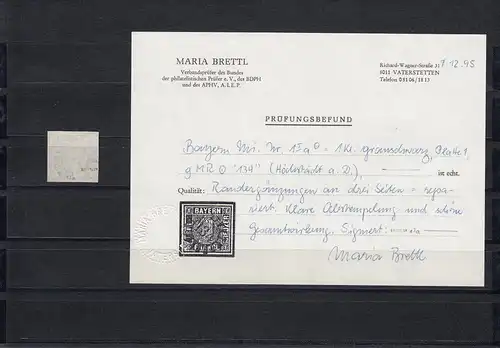 MARIA BRETTL
Verbandsprüfer des Bundes
der philatelistischen Prüfer e. V., des BDPH
und des APHV, A.I.E.P.
Richard-Wagner-Straße 31
8011 VATERSTETTEN
Telefon 08106/1813
7.12.95
PRÜFUNGSBEFUND
Bayern Mi. Nr. 1 I a - 1 Kr. grauschwarz, Platte 1,
g MR "134" (Höchstädt a. D.),
ist echt.
Qualität: Randergänzungen an drei Seiten - repa-
riert. Klare Abstempelung und schöne
Gesamtwirkung. Signiert:
Maria Brettl
BAYERN